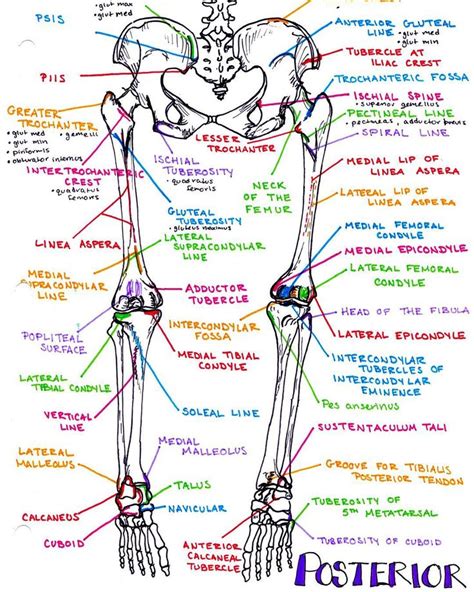 • glut max
• glut med
PSIS
PIIS
GREATER
TROCHANTER
• glut med
• gemelli
• glut min
• piriformis
• obturator internus
INTERTROCHANTERIC
CREST
• quadratus
femoris
LINEA ASPERA
MEDIAL
SUPRACONDYLAR
LINE
POPLITEAL
SURFACE
LATERAL
TIBIAL CONDYLE
VERTICAL
LINE
LATERAL
MALLEOLUS
CALCANEUS
CUBOID
ISCHIAL
TUBEROSITY
• quadratus
femoris
GLUTEAL
TUBEROSITY
• gluteus maximus
LATERAL
SUPRACONDYLAR
LINE
ADDUCTOR
TUBERCLE
INTERCONDYLAR
FOSSA
MEDIAL TIBIAL
CONDYLE
SOLEAL LINE
MEDIAL
MALLEOLUS
TALUS
NAVICULAR
ANTERIOR
CALCANEAL
TUBERCLE
LESSER
TROCHANTER
NECK
OF THE
FEMUR
ANTERIOR GLUTEAL
LINE
• glut med
• glut min
TUBERCLE AT
ILIAC CREST
TROCHANTERIC FOSSA
ISCHIAL SPINE
• superior gemellus
PECTINEAL LINE
• pectineus, adductor brevis
SPIRAL LINE
MEDIAL LIP OF
LINEA ASPERA
LATERAL LIP OF
LINEA ASPERA
MEDIAL FEMORAL
CONDYLE
MEDIAL EPICONDYLE
LATERAL FEMORAL
CONDYLE
HEAD OF THE FIBULA
LATERAL EPICONDYLE
INTERCONDYLAR
TUBERCLES OF
INTERCONDYLAR
EMINENCE
Pes anserinus
SUSTENTACULUM TALI
GROOVE FOR TIBIALIS
POSTERIOR TENDON
TUBEROSITY OF
5TH METATARSAL
TUBEROSITY OF CUBOID
POSTERIOR